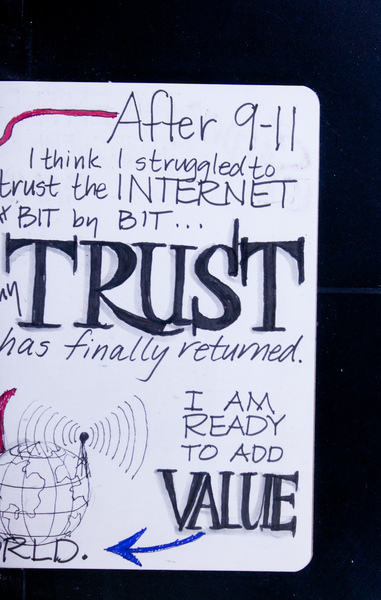 After 9-11
I think I struggled to
trust the INTERNET
BIT by BIT...
TRUST
has finally returned.
I AM
READY
TO ADD
VALUE
RLD.